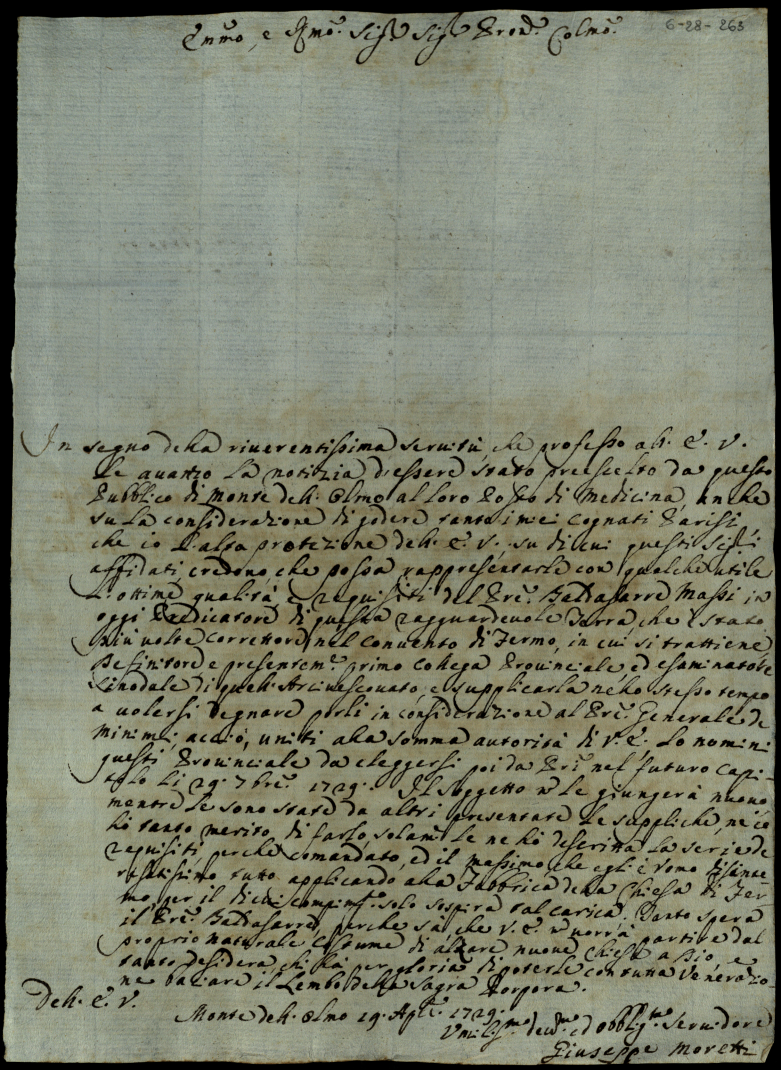 6-28-263
Emmo, e Rmo. Sigr Sigr Pron. Colmo.
In segno della riuerentissima seruitù, che professo all. E. V.
Le auanzo la notizia d'essere stato prescelto da questo
Pubblico di Monte dell. Olmo al loro Posto di Medicina, anche
su la considerazione di godere tanto i miei Cognati Parisi
che io l'alta protezione dell. E. V., su di cui questi Sigri
affidati, credono, che possa rappresentarle con qualche utile
L'ottime qualità, e requisiti del Pre. Baldasarre Massi in
oggi Predicatore di questa ragguardeuole Terra, che è stato
più uolte Correttore nel Conuento di Fermo, in cui si trattiene
Definitore e presentem. primo Collega Prouinciale, ed esaminatore
Sinodale di quell. Arciuescouato, e supplicarla nello stesso tempo
a uolersi degnare porli in considerazione al Pre. Generale de
Minimi, acciò, uniti alla somma autorità di V. E. Lo nomini
questi Prouinciale da eleggersi poi da Pri nel futuro Capi-
tolo li 29. 7bre. 1729. Il soggetto n le giungerà nuouo
mentre le sono state da altri presentate le suppliche, ne io
hò tanto merito di farlo, solam. le ne hò descritta la serie de
requisiti, perche comandato, ed il massimo, che egli è Uomo disinte
ressatissimo tutto applicando alla Fabbrica della Chiesa di Fer-
mo, per il di cui compim. solo sospira tal carica. Tanto spera
il Pre. Baldasarre, perche sà, che V. E. n uorrà partire dal
proprio naturale Costume di alzare nuoue Chiese a Dio, e
tanto desidera chi hà per gloria di poterle con tutta Venerazio-
ne baciare il Lembo della Sagra Porpora.
Dell. E. V.
Monte dell. Olmo 19. Aple. 1729.
Vmiliss.mo deu.mo ed obblig.mo Seruidore
Giuseppe Moretti